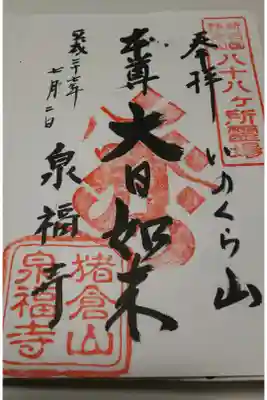 八十八ヶ所霊場
奉拝
いのくら山
本尊
大日如来
平成二十七年
七月二日
泉福寺
猪倉山
泉福寺